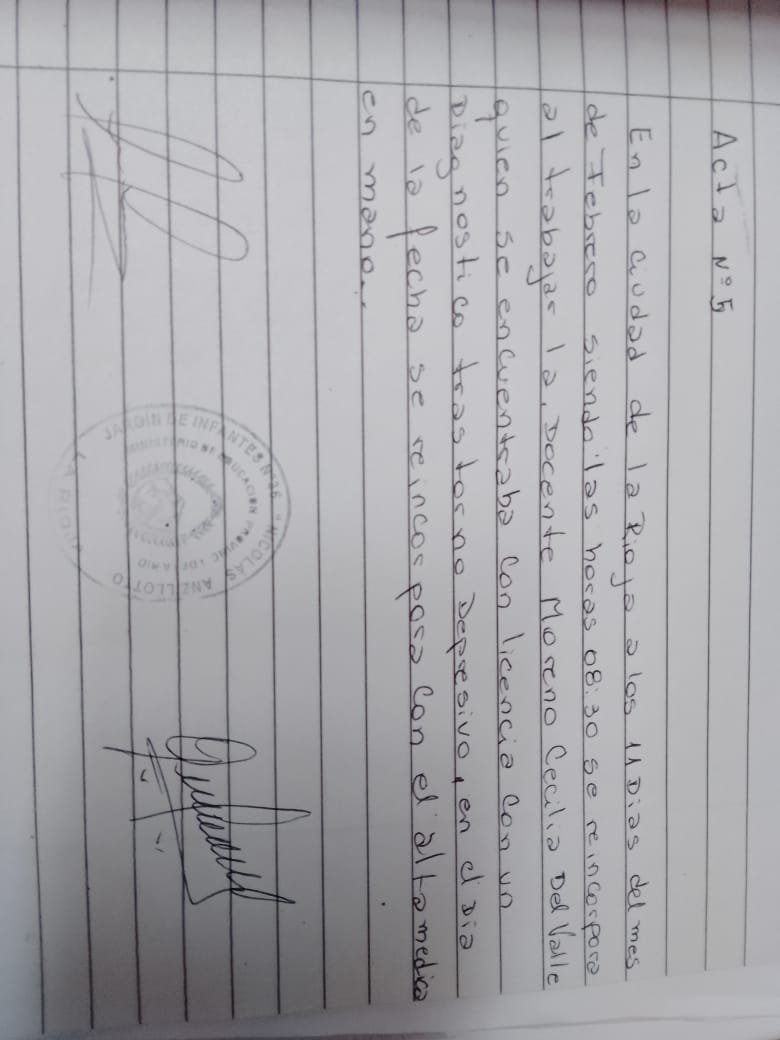 Acta N° 5
En la ciudad de la Rioja a los 11 Dias del mes
de Febrero siendo las horas 08:30 se reincorpora
al trabajar la, Docente Moreno Cecilia Del Valle
quien se encuentraba con licencia con un
Diagnostico trastorno Depresivo, en el Dia
de la fecha se reincorpora con el alta medica
en mano..
JARDIN DE INFANTES N° 26 " NICOLAS ANZILLOTTO
MINISTERIO DE EDUCACION
LA RIOJA